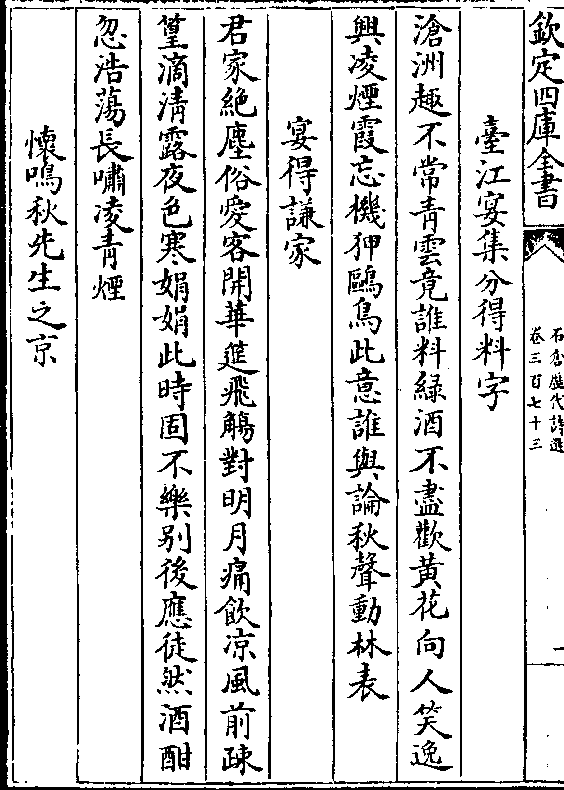 欽定四庫全書
石倉歷代詩選
卷三百七十三
一
臺江宴集分得料字
滄洲趣不常青雲竟誰料綠酒不盡歡黃花向人笑逸
興凌煙霞忘機狎鷗鳥此意誰與論秋聲動林表
宴得謙家
君家絕塵俗愛客開華筵飛觴對明月痛飲凉風前疎
篁滴淸露夜色寒娟娟此時固不樂别後應徒然酒酣
忽浩蕩長嘯凌青煙
懷鳴秋先生之京